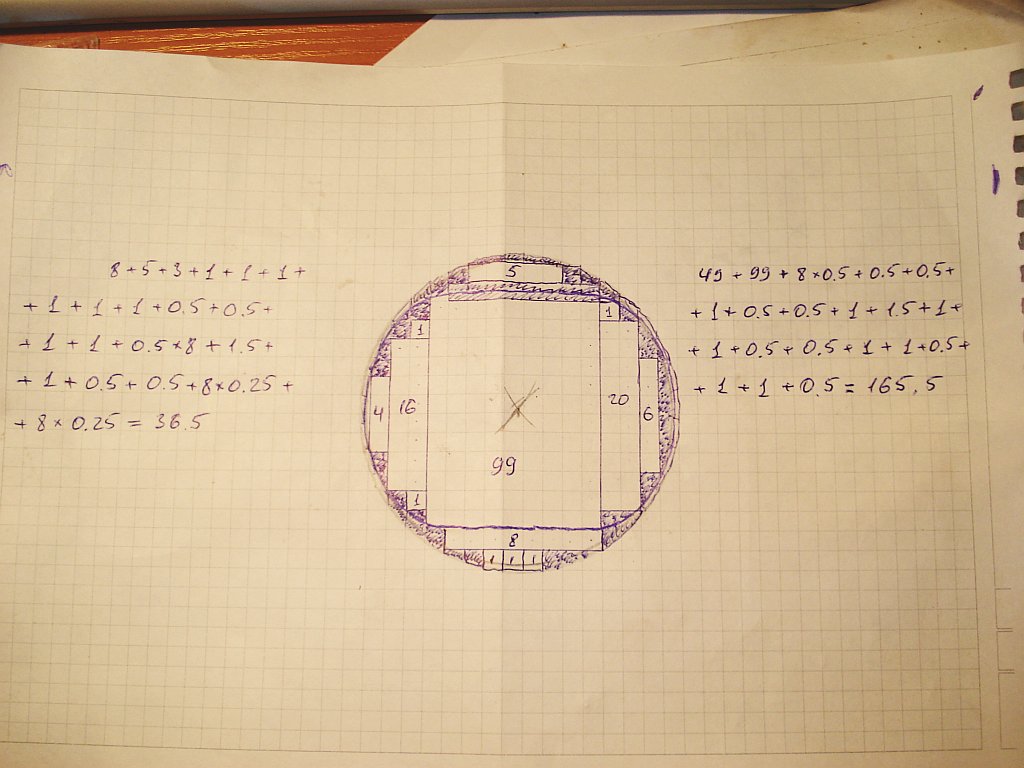 8+5+3+1+1+1+
+1+1+1+0.5+0.5+
+1+1+0.5×8+1.5+
+1+0.5+0.5+8×0.25+
+8×0.25=36.5
5
1
1
4
16
20
6
99
1
8
1 1 1
49+99+8×0.5+0.5+0.5+
+1+0.5+0.5+1+1.5+1+
+1+0.5+0.5+1+1+0.5+
+1+1+0.5=165,5